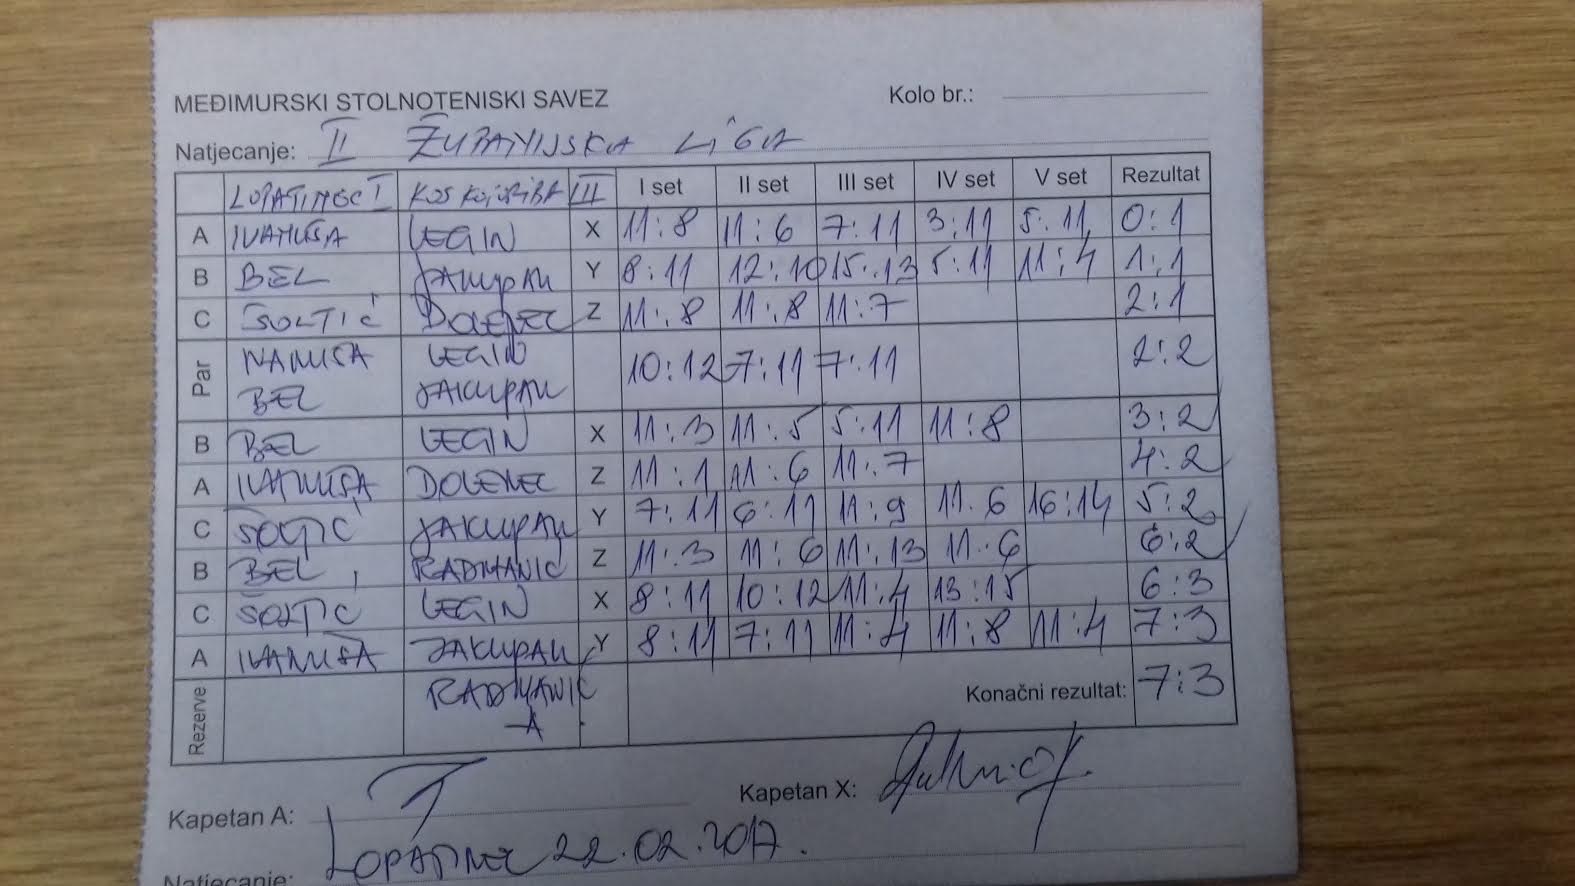 MEĐIMURSKI STOLNOTENISKI SAVEZ Kolo br.:
Natjecanje: II ŽUPANIJSKA LIGA
LOPATINEC I KOS KOJI RIBA III I set II set III set IV set V set Rezultat
A IVANUŠA LEGIN X 11:8 11:6 7:11 3:11 5:11 0:1
B BEL JAKUPAK Y 8:11 12:10 15:13 5:11 11:4 1:1
C ŠOLTIĆ DOLENEC Z 11:8 11:8 11:7 2:1
Par IVANUŠA LEGIN 10:12 7:11 7:11 2:2
BEL JAKUPAK
B BEL LEGIN X 11:3 11:5 5:11 11:8 3:2
A IVANUŠA DOLENEC Z 11:1 11:6 11:7 4:2
C ŠOLTIĆ JAKUPAK Y 7:11 6:11 11:9 11:6 16:14 5:2
B BEL RADMANIĆ Z 11:3 11:6 11:13 11:6 6:2
C ŠOLTIĆ LEGIN X 8:11 10:12 11:4 13:15 6:3
A IVANUŠA JAKUPAK Y 8:11 7:11 11:4 11:8 11:4 7:3
Rezerve RADMANIĆ Konačni rezultat: 7:3
-A
Kapetan A: Kapetan X:
LOPATINEC 22.02.2017.
Natjecanje: